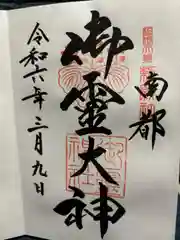 南都
御霊大神
令和六年三月九日